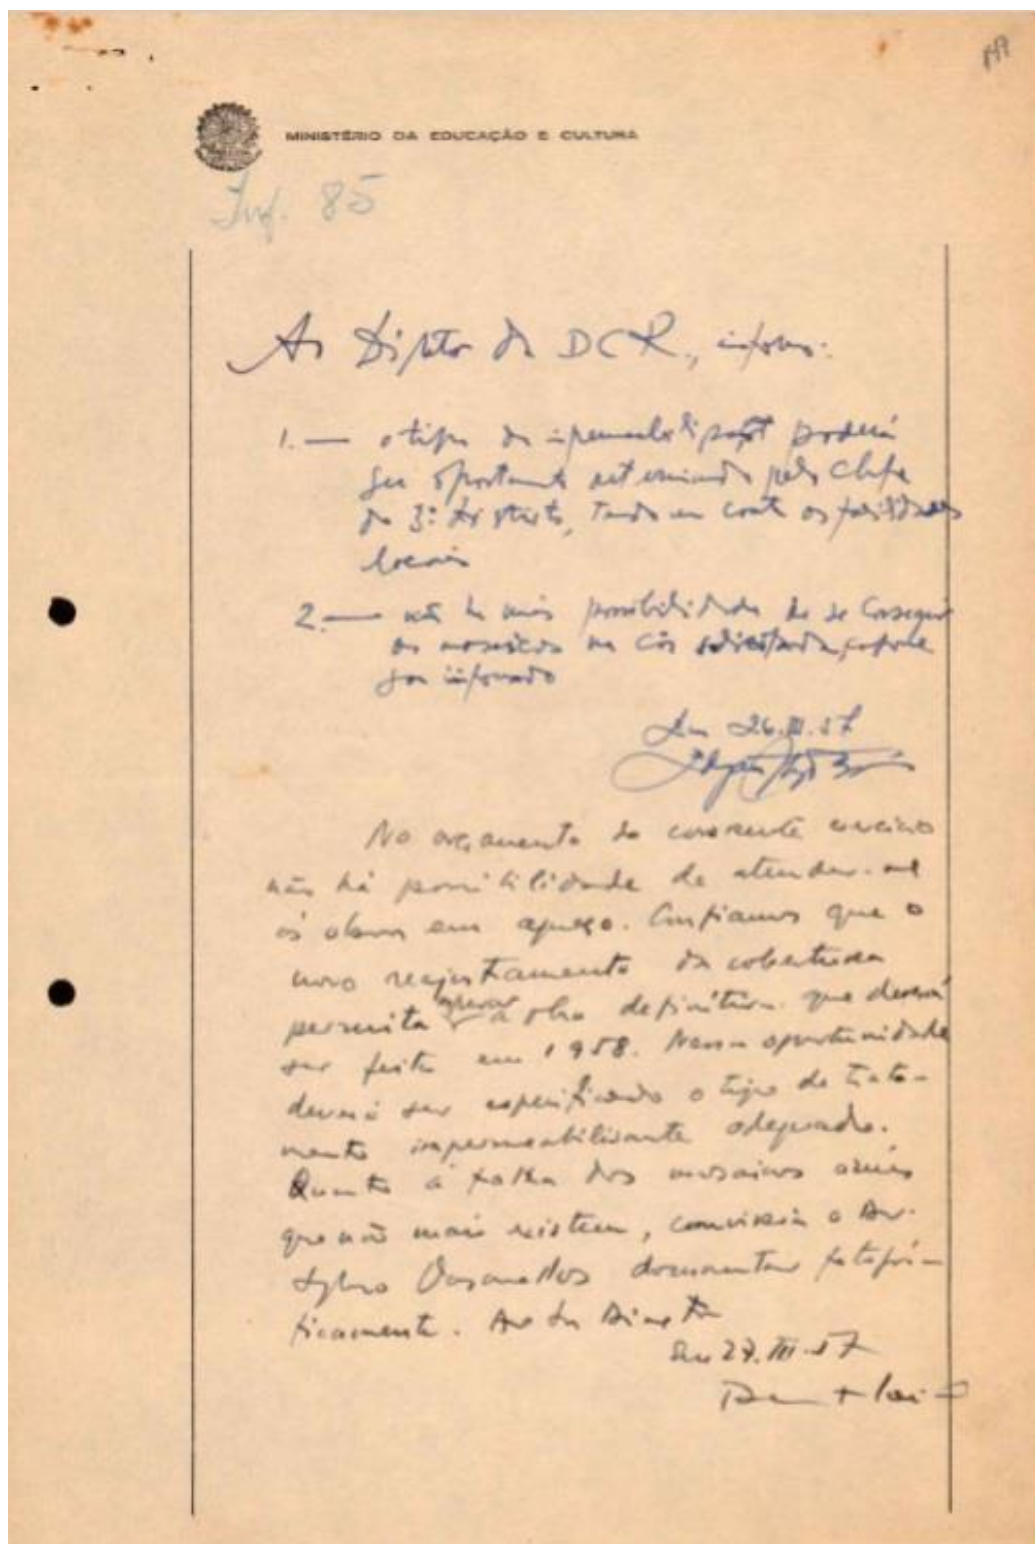 MINISTÉRIO DA EDUCAÇÃO E CULTURA
Inf. 85
Ao Diretor da DCR., informo:
1. — o tipo de poderá
ser determinado pelo Chefe
do 3º distrito, tendo em conta as facilidades
locais
2. — não há mais possibilidade de se conseguir
os mosaicos na côr solicitada, conforme
informado
Em 26.III.57
No orçamento do corrente exercício
não há possibilidade de atender-se
as obras em apreço. Confiamos que o
novo reajustamento da cobertura
permita a obra definitiva que deverá
ser feita em 1958. Nessa oportunidade
deverá ser especificado o tipo de trata-
mento impermeabilizante adequado.
Quanto à falha dos mosaicos azuis
que não mais existem, conviria o Dr.
Sylvio Vasconcellos documentar fotográ-
ficamente. Ao Sr Diretor
Em 27.III.57